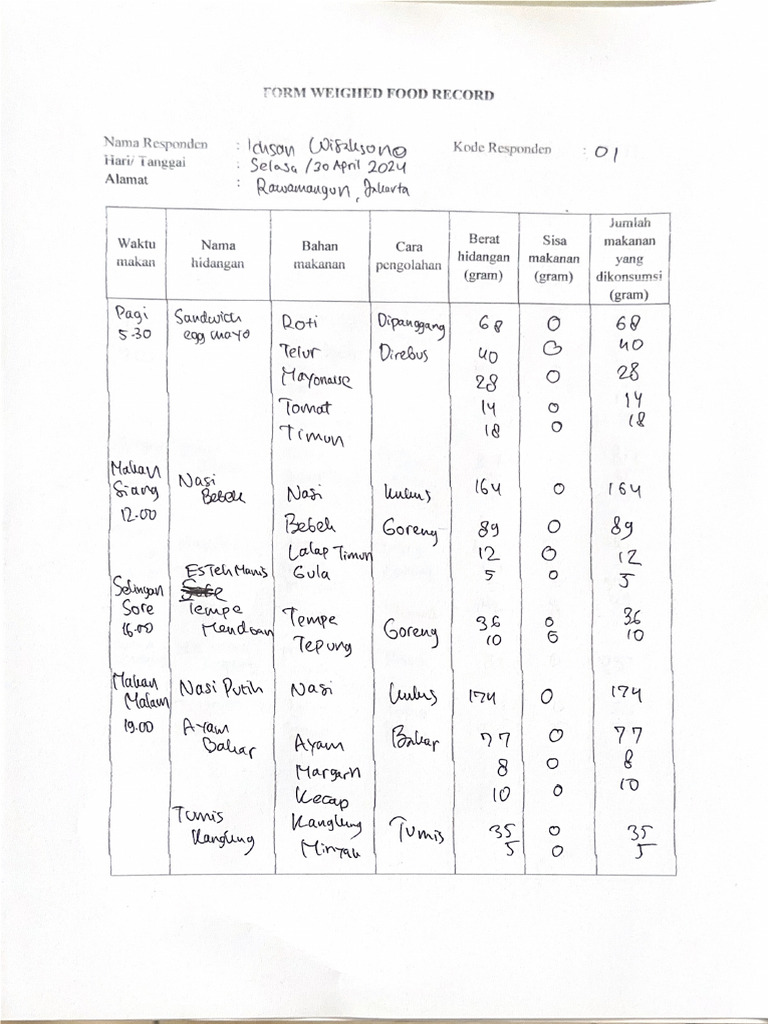 FORM WEIGHED FOOD RECORD
Nama Responden : Ichsan Wisaksono Kode Responden : 01
Hari/ Tanggal : Selasa / 30 April 2024
Alamat : Rawamangun, Jakarta
Waktu makan Nama hidangan Bahan makanan Cara pengolahan Berat hidangan (gram) Sisa makanan (gram) Jumlah makanan yang dikonsumsi (gram)
Pagi Sandwich Roti Dipanggang 68 0 68
5.30 egg mayo
Telur Direbus 40 0 40
Mayonaise 28 0 28
Tomat 14 0 14
Timun 18 0 18
Makan
Siang Nasi Nasi kukus 164 0 164
12.00 Bebek
Bebek Goreng 89 0 89
Lalap Timun 12 0 12
Es Teh Manis Gula 5 0 5
Selingan
Sore Tempe Tempe 36 0 36
16.00 Mendoan Tepung Goreng 10 0 10
Makan Nasi Putih Nasi kukus 174 0 174
Malam
19.00 Ayam
Bakar Ayam Bakar 77 0 77
Margarin 8 0 8
Kecap 10 0 10
Tumis Kangkung Tumis 35 0 35
Kangkung Minyak 5 0 5